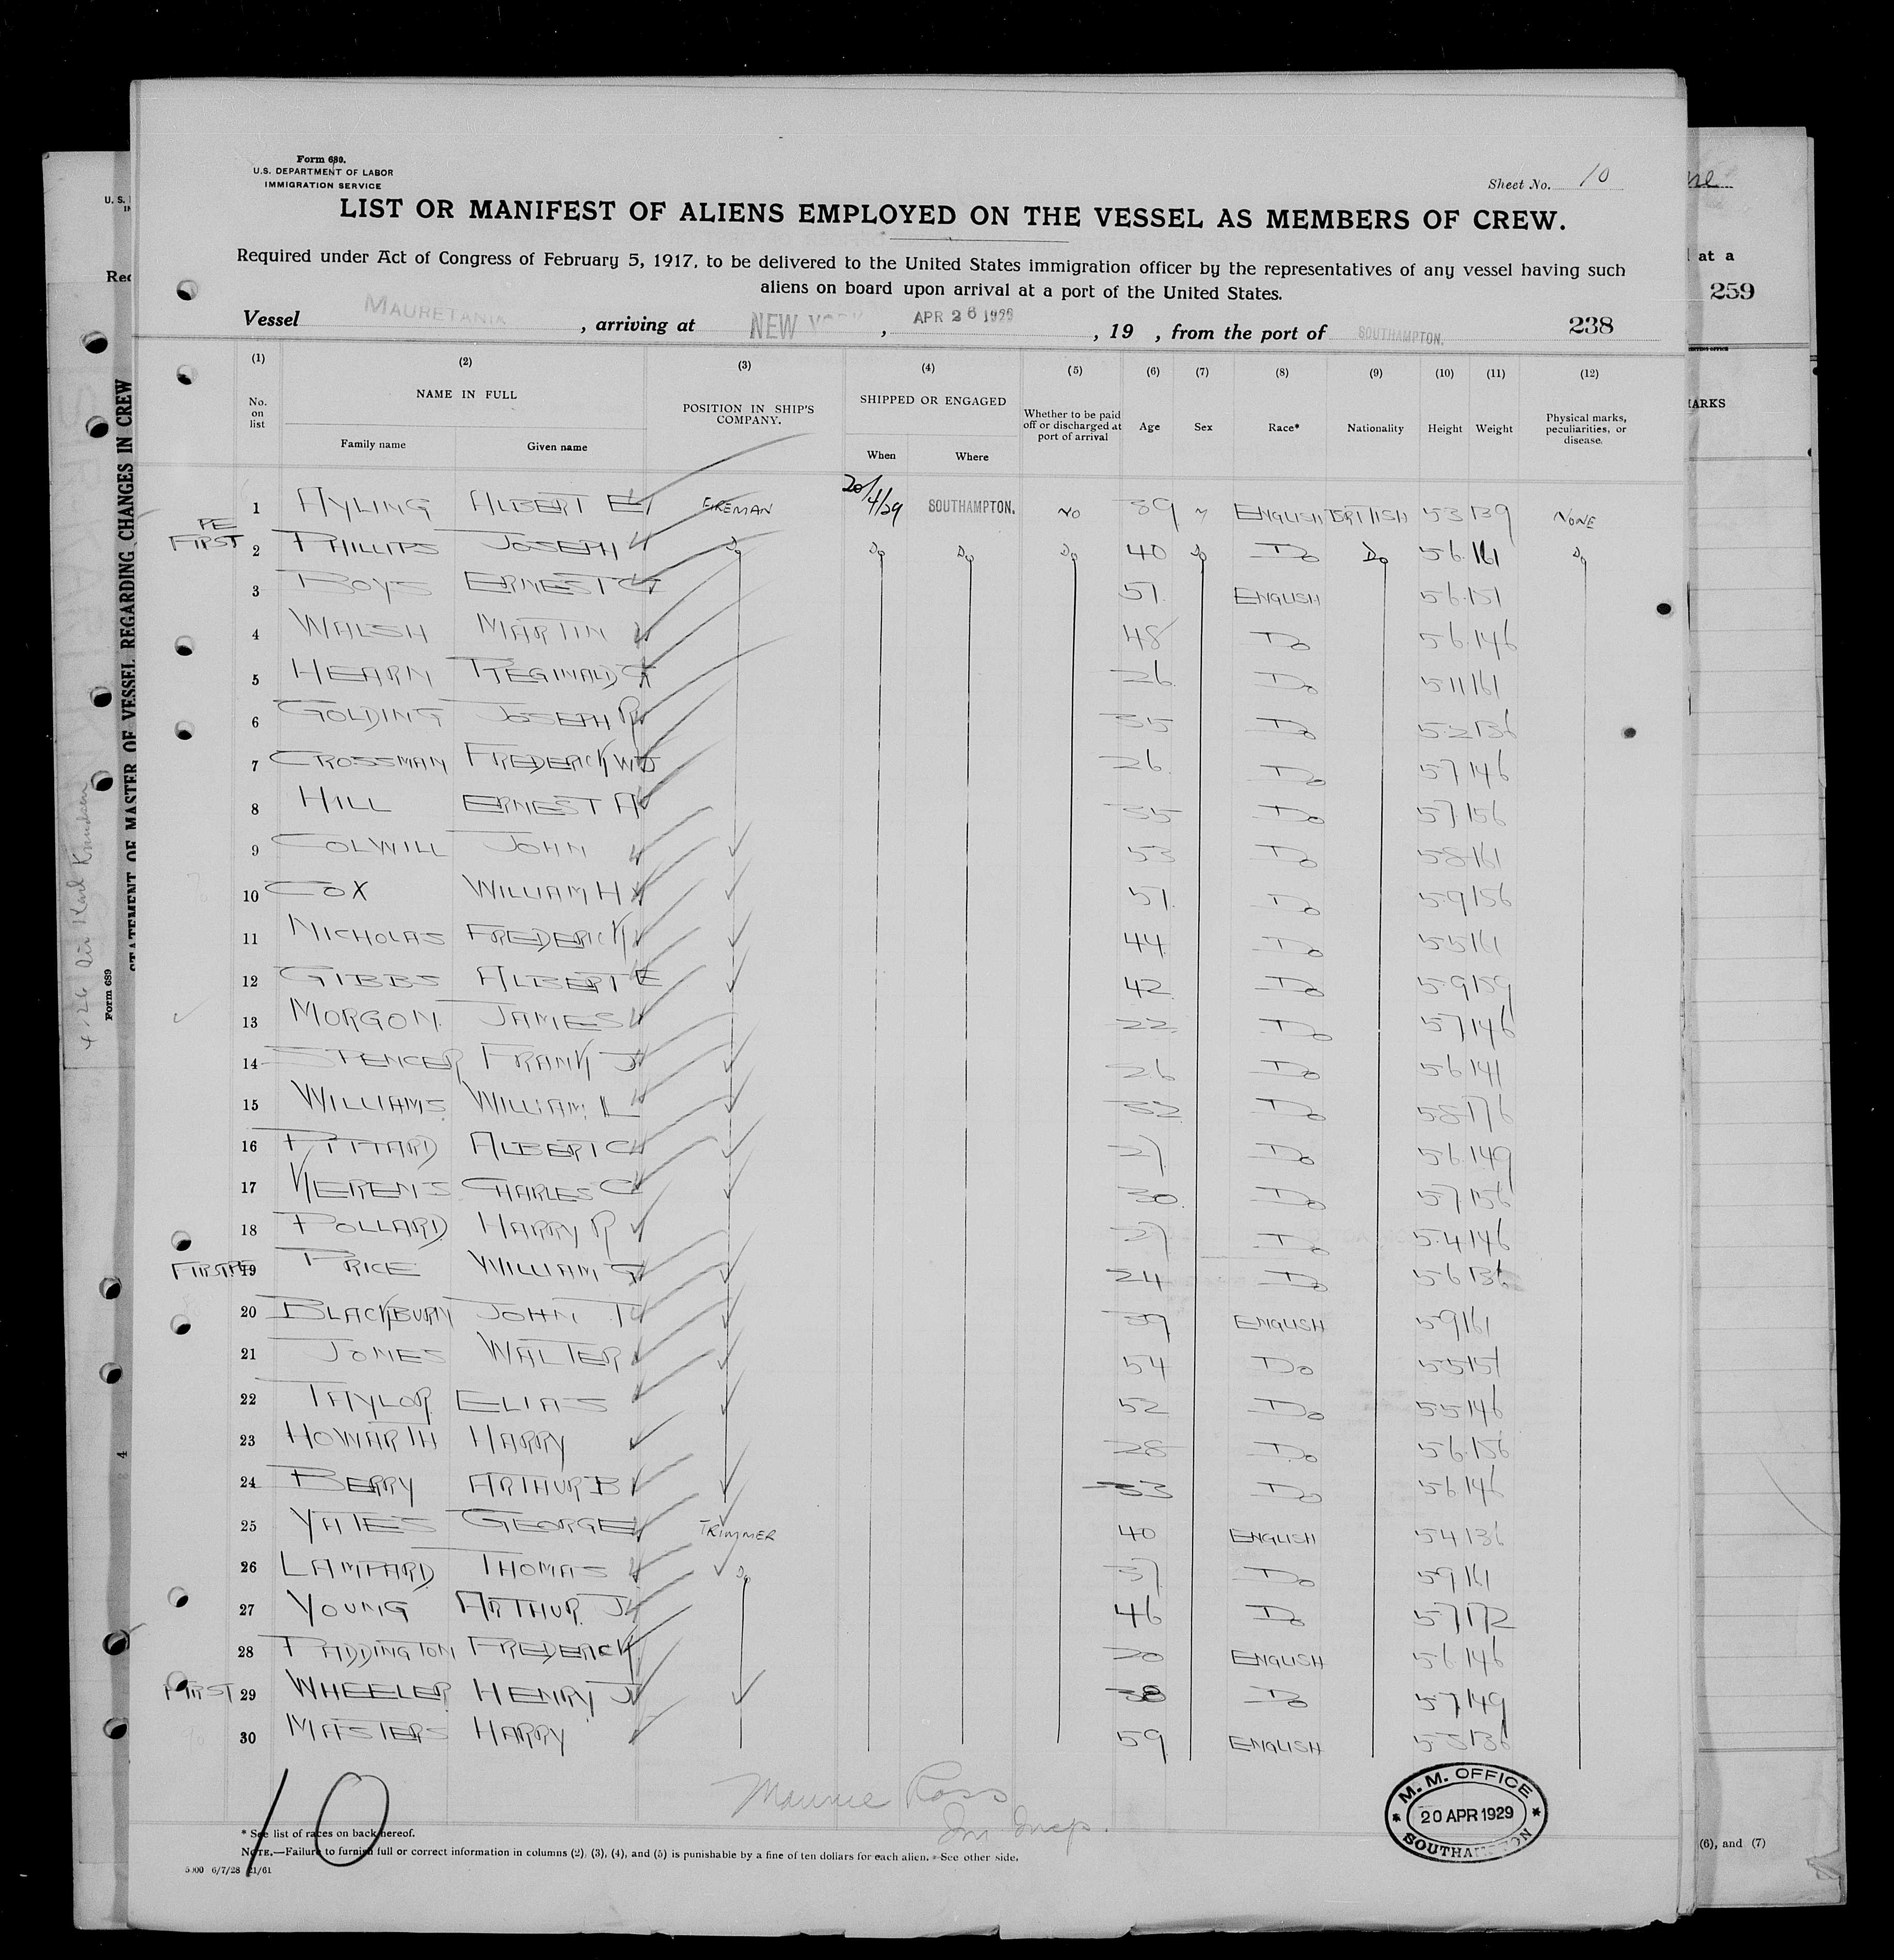 Form 680.
U.S. DEPARTMENT OF LABOR
IMMIGRATION SERVICE
Sheet No. 10
LIST OR MANIFEST OF ALIENS EMPLOYED ON THE VESSEL AS MEMBERS OF CREW.
Required under Act of Congress of February 5, 1917, to be delivered to the United States immigration officer by the representatives of any vessel having such
aliens on board upon arrival at a port of the United States.
Vessel MAURETANIA, arriving at NEW YORK, APR 26 1929, 19 , from the port of SOUTHAMPTON. 238
(1) (2) (3) (4) (5) (6) (7) (8) (9) (10) (11) (12)
No. on list NAME IN FULL Family name Given name POSITION IN SHIP'S COMPANY. SHIPPED OR ENGAGED When Where Whether to be paid off or discharged at port of arrival Age Sex Race* Nationality Height Weight Physical marks, peculiarities, or disease.
1 AYLING ALBERT E FIREMAN 20/4/29 SOUTHAMPTON. NO 39 M ENGLISH BRITISH 5 3 139 NONE
PE FIRST 2 PHILLIPS JOSEPH Do Do Do Do 40 Do Do Do 5 6 161 Do
3 BOYS ERNEST G 51 ENGLISH 5 6 151
4 WALSH MARTIN 48 Do 5 6 146
5 HEARN REGINALD G 26 Do 5 11 161
6 GOLDING JOSEPH R 35 Do 5 2 136
7 CROSSMAN FREDERICK W J 26 Do 5 7 146
8 HILL ERNEST A 35 Do 5 7 156
9 COLWILL JOHN 53 Do 5 8 161
10 COX WILLIAM H 51 Do 5 9 156
11 NICHOLAS FREDERICK 44 Do 5 5 161
12 GIBBS ALBERT E 42 Do 5 9 159
13 MORGON JAMES 22 Do 5 7 146
14 SPENCER FRANK J 26 Do 5 6 141
15 WILLIAMS WILLIAM L 32 Do 5 8 176
16 PITTARD ALBERT C 27 Do 5 6 149
17 KERENS CHARLES C 30 Do 5 7 156
18 POLLARD HARRY R 37 Do 5 4 146
FIRST PE 19 PRICE WILLIAM G 24 Do 5 6 136
20 BLACKBURN JOHN T 39 ENGLISH 5 9 161
21 JONES WALTER 54 Do 5 5 151
22 TAYLOR ELIAS 52 Do 5 5 146
23 HOWARTH HARRY 28 Do 5 6 156
24 BERRY ARTHUR B 33 Do 5 6 146
25 YATES GEORGE TRIMMER 40 ENGLISH 5 4 136
26 LAMPARD THOMAS Do 37 Do 5 9 161
27 YOUNG ARTHUR J 46 Do 5 7 172
28 PADDINGTON FREDERICK 20 ENGLISH 5 6 146
FIRST 29 WHEELER HENRY J 38 Do 5 7 149
30 MASTERS HARRY 59 ENGLISH 5 5 136
10
Ross
Im Insp.
M. M. OFFICE
20 APR 1929
SOUTHAMPTON
* See list of races on back hereof.
NOTE.—Failure to furnish full or correct information in columns (2), (3), (4), and (5) is punishable by a fine of ten dollars for each alien. See other side.
STATEMENT OF MASTER OF VESSEL REGARDING CHANGES IN CREW
Form 689
at a
259
(6), and (7)